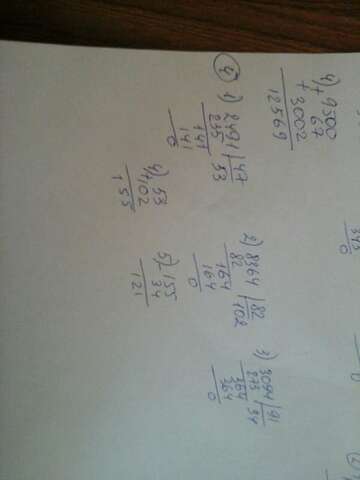 4) + 9500
67
+ 3002
12569
4
1) 2491 | 47
235 | 53
141
141
0
2) 8364 | 82
82 | 102
164
164
0
3) 3094 | 91
273 | 34
364
364
0
4) + 53
102
155
5) - 155
34
121
0
0